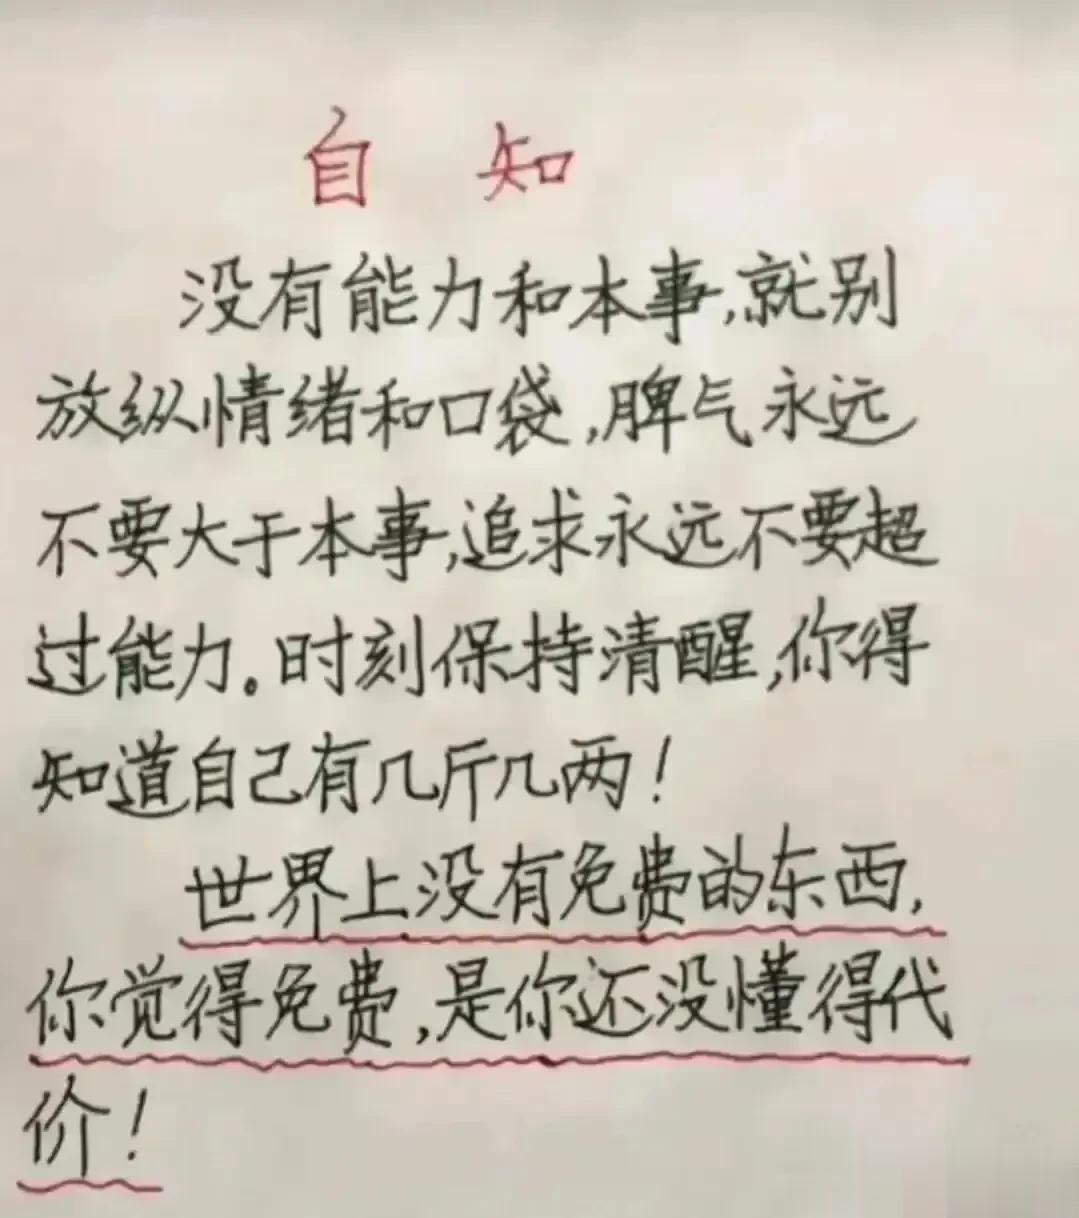 自 知
没有能力和本事,就别
放纵情绪和口袋,脾气永远
不要大于本事,追求永远不要超
过能力。时刻保持清醒,你得
知道自己有几斤几两!
世界上没有免费的东西,
你觉得免费,是你还没懂得代
价!